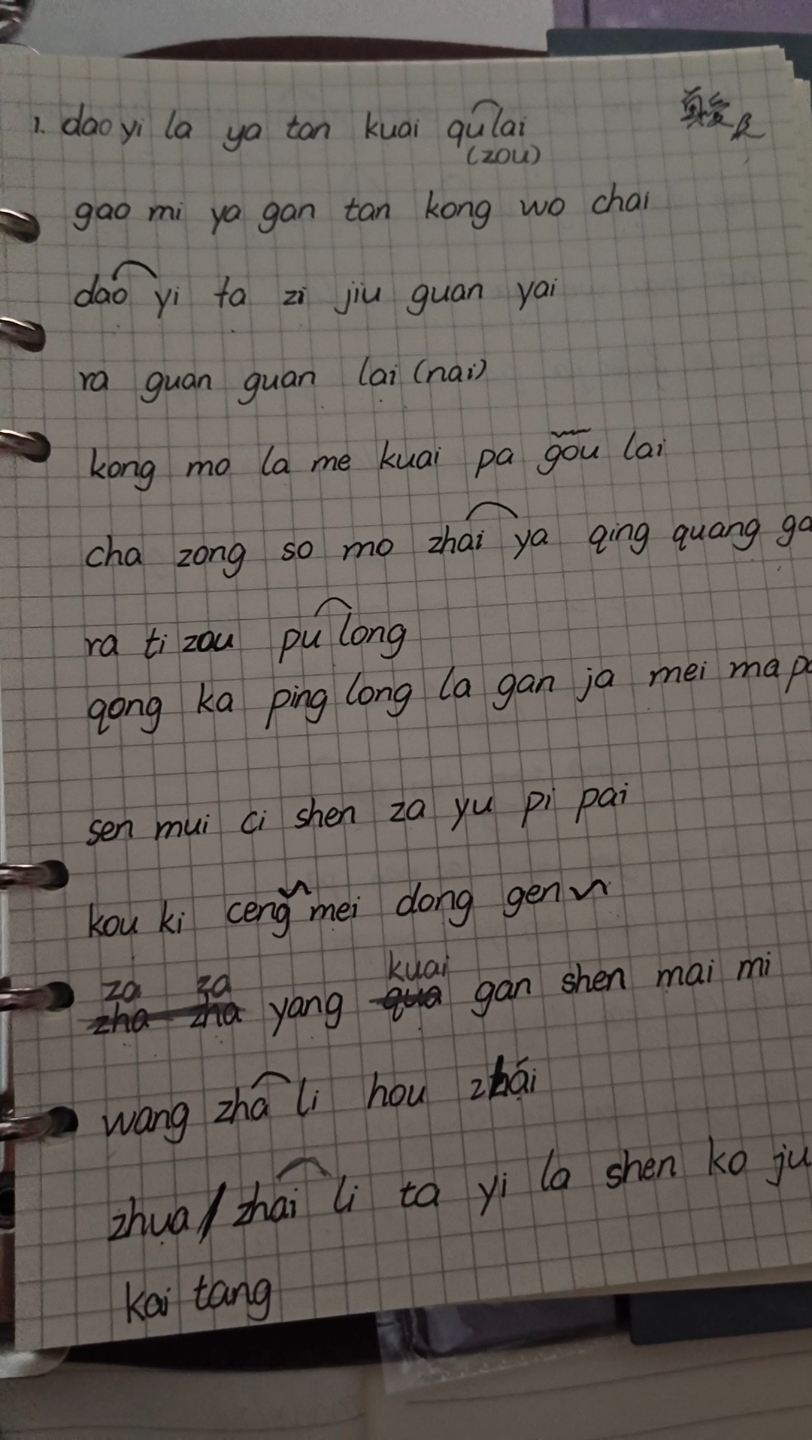 1. dao yi la ya tan kuai qu lai
(zou)
gao mi ya gan tan kong wo chai
dao yi ta zi jiu guan yai
ra guan guan lai (nai)
kong mo la me kuai pa gou lai
cha zong so mo zhai ya qing quang ga
ra ti zou pu long
qong ka ping long la gan ja mei ma
sen mui ci shen za yu pi pai
kou ki ceng mei dong gen
za za kuai
yang gan shen mai mi
wang zha li hou zhai
zhua / zhai li ta yi la shen ko ju
kai tang